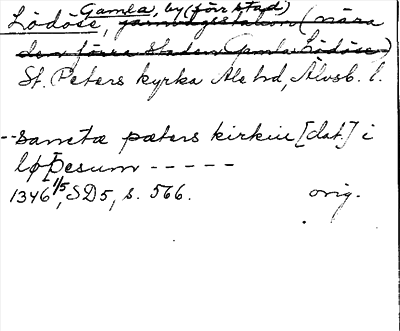 Gamla, by (förr stad)
Lödöse, järnvägsstation (nära
den förra staden Gamla Lödöse)
St. Peters kyrka Ale hd, Älvsb. l.
-- sanctæ pæters kirkiu [dat.] i
løþesum - - - - -
1346 1/5, SD5, s. 566. orig.